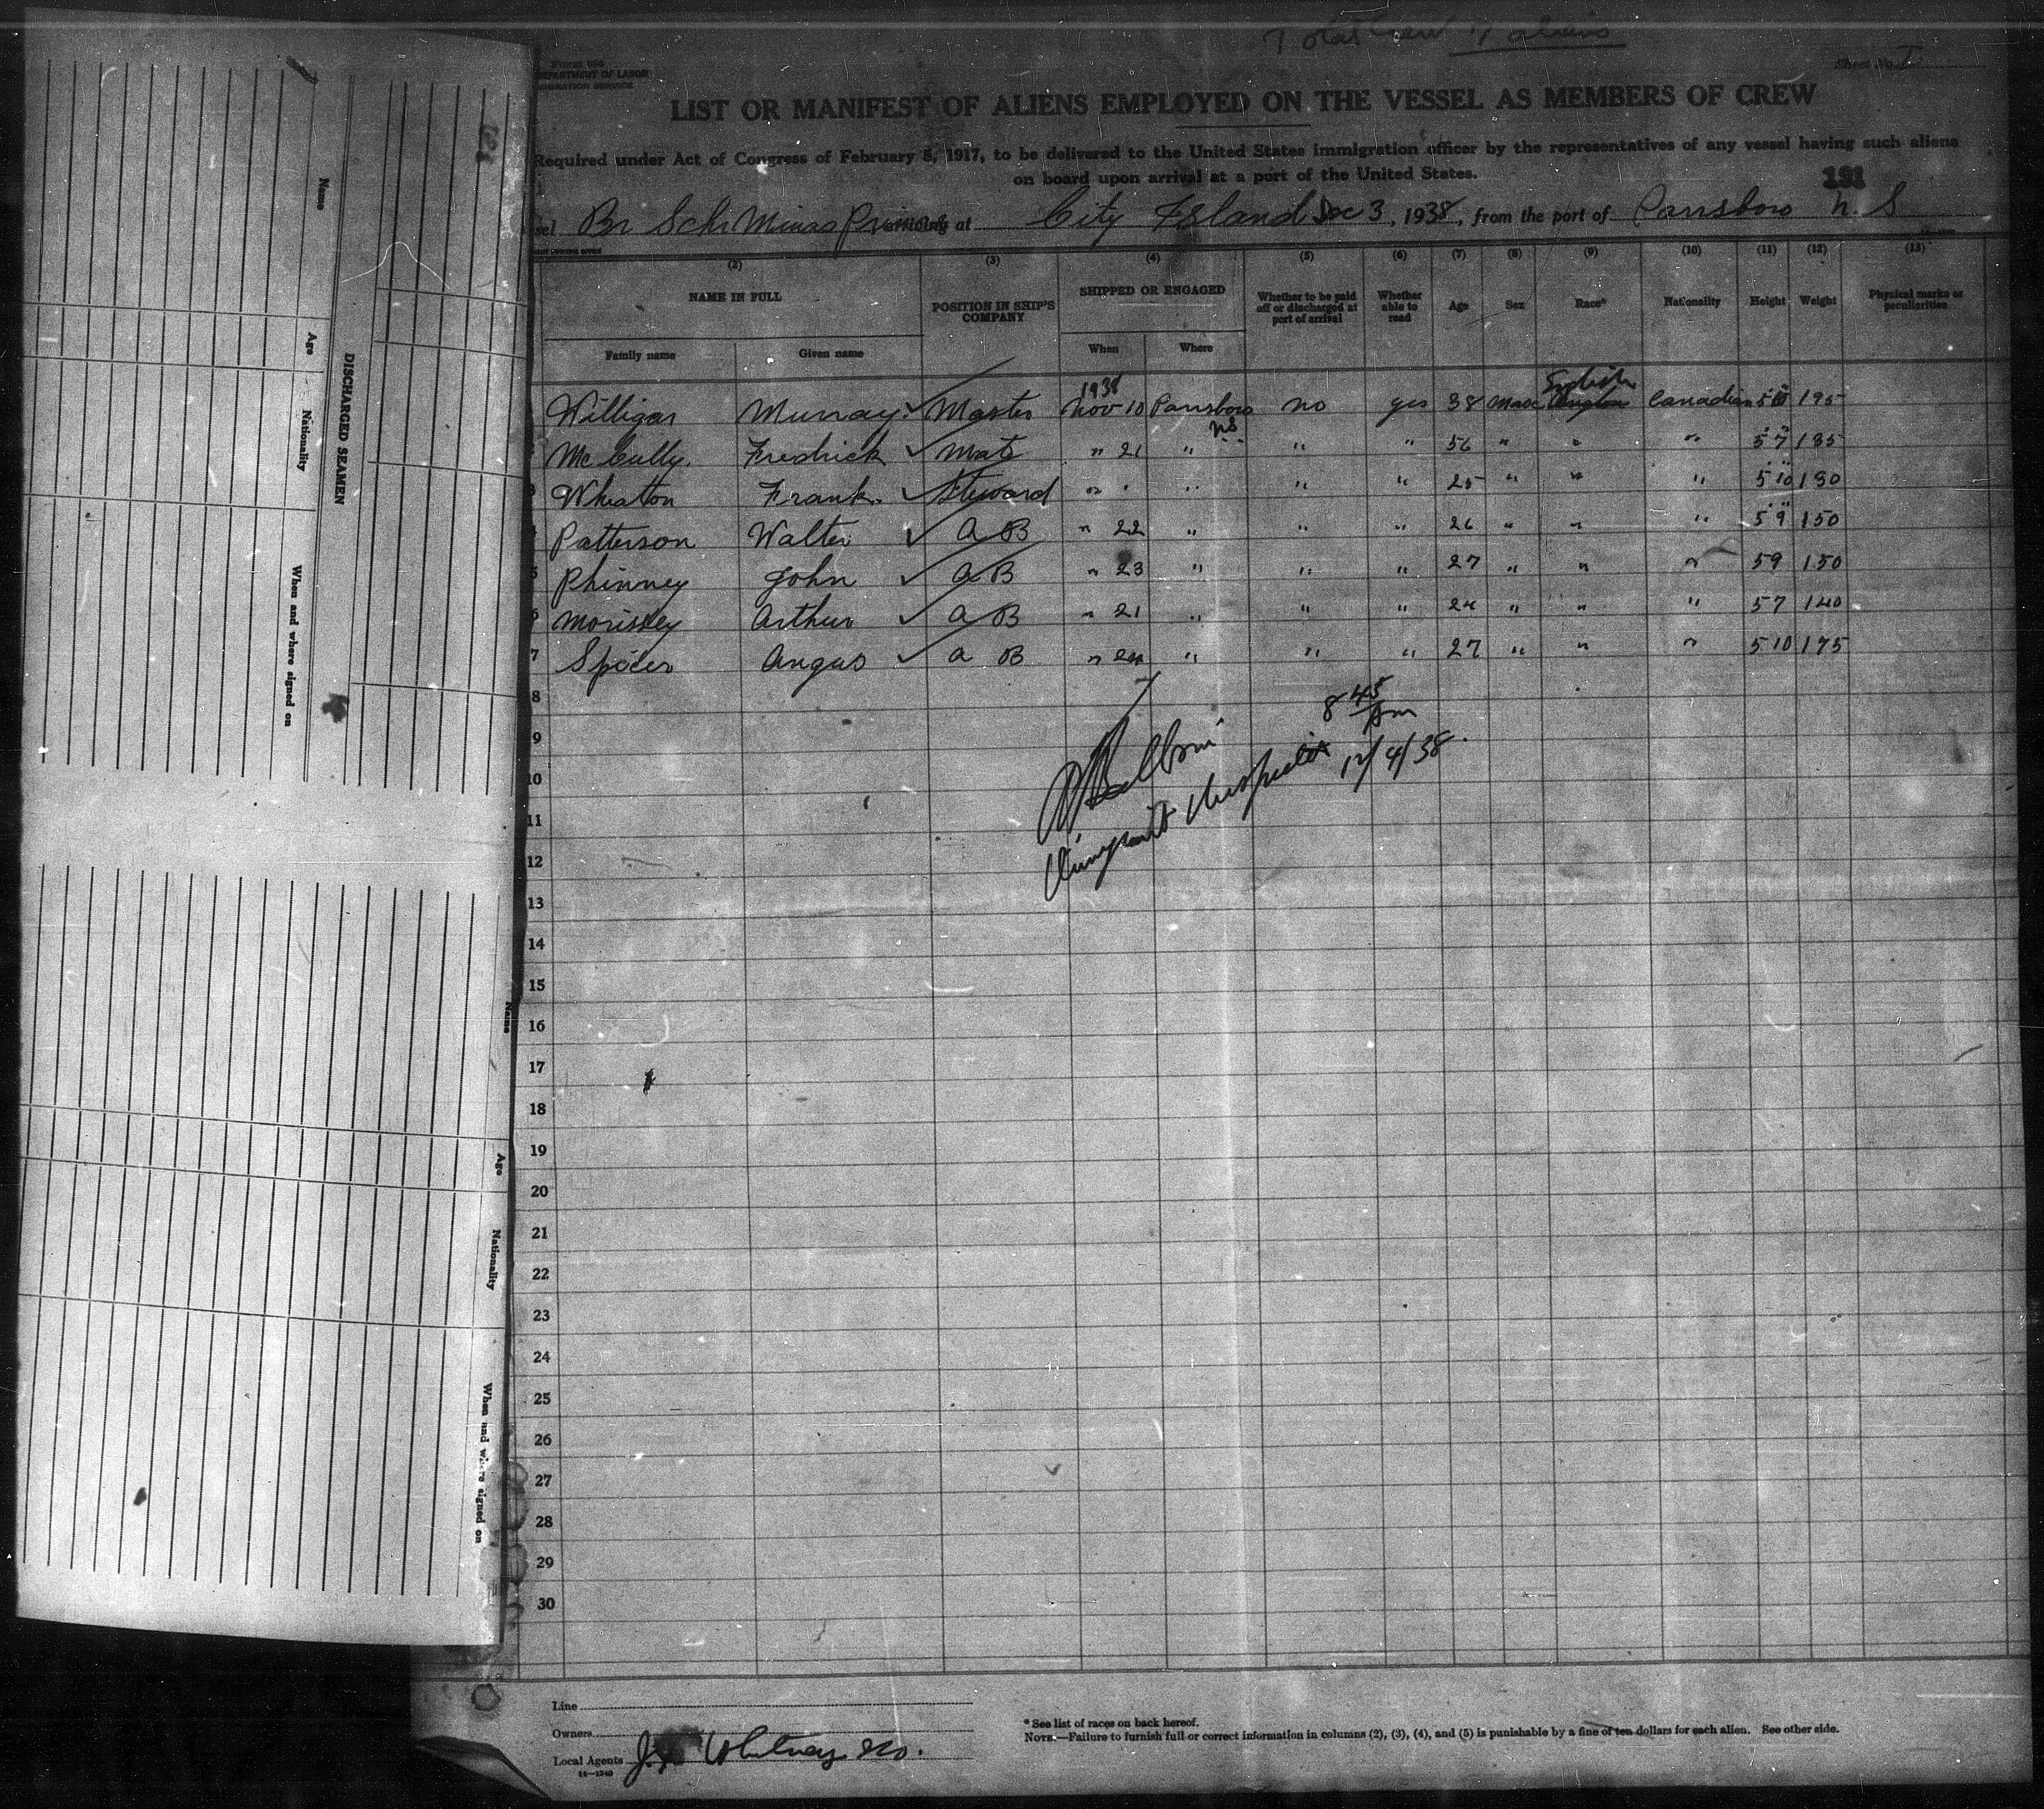 Total Crew 7 aliens
Form 680
DEPARTMENT OF LABOR
IMMIGRATION SERVICE
Sheet No. I
LIST OR MANIFEST OF ALIENS EMPLOYED ON THE VESSEL AS MEMBERS OF CREW
Required under Act of Congress of February 5, 1917, to be delivered to the United States immigration officer by the representatives of any vessel having such aliens
on board upon arrival at a port of the United States.
191
sel Br Schr Minas Prince arriving at City Island Dec 3, 1938, from the port of Parrsboro N. S
(2) (3) (4) (5) (6) (7) (8) (9) (10) (11) (12) (13)
NAME IN FULL POSITION IN SHIP'S COMPANY SHIPPED OR ENGAGED Whether to be paid off or discharged at port of arrival Whether able to read Age Sex Race* Nationality Height Weight Physical marks or peculiarities
Family name Given name When Where
1938 English
Willigar Murray Master Nov 10 Parrsboro no yes 38 Male Canadian 5 10 195
NS
McCully Fredrick Mate " 21 " " " 56 " " " 5 7 185
3 Wheaton Frank Steward " " " " " 25 " " " 5 10 180
4 Patterson Walter A B " 22 " " " 26 " " " 5 9 150
5 Phinney John A B " 23 " " " 27 " " " 5 9 150
6 Morissey Arthur A B " 21 " " " 24 " " " 5 7 140
7 Spicer Angus A B " 24 " " " 27 " " " 5 10 175
8
9
10
11
12
13
14
15
16
17
18
19
20
21
22
23
24
25
26
27
28
29
30
8 45 Am
Immigrant Inspector 12/4/38
Line
Owners
Local Agents J.F. Whitney & Co.
14—1240
* See list of races on back hereof.
NOTE.—Failure to furnish full or correct information in columns (2), (3), (4), and (5) is punishable by a fine of ten dollars for each alien. See other side.
DISCHARGED SEAMEN
Name Age Nationality When and where signed on
Name Age Nationality When and where signed on